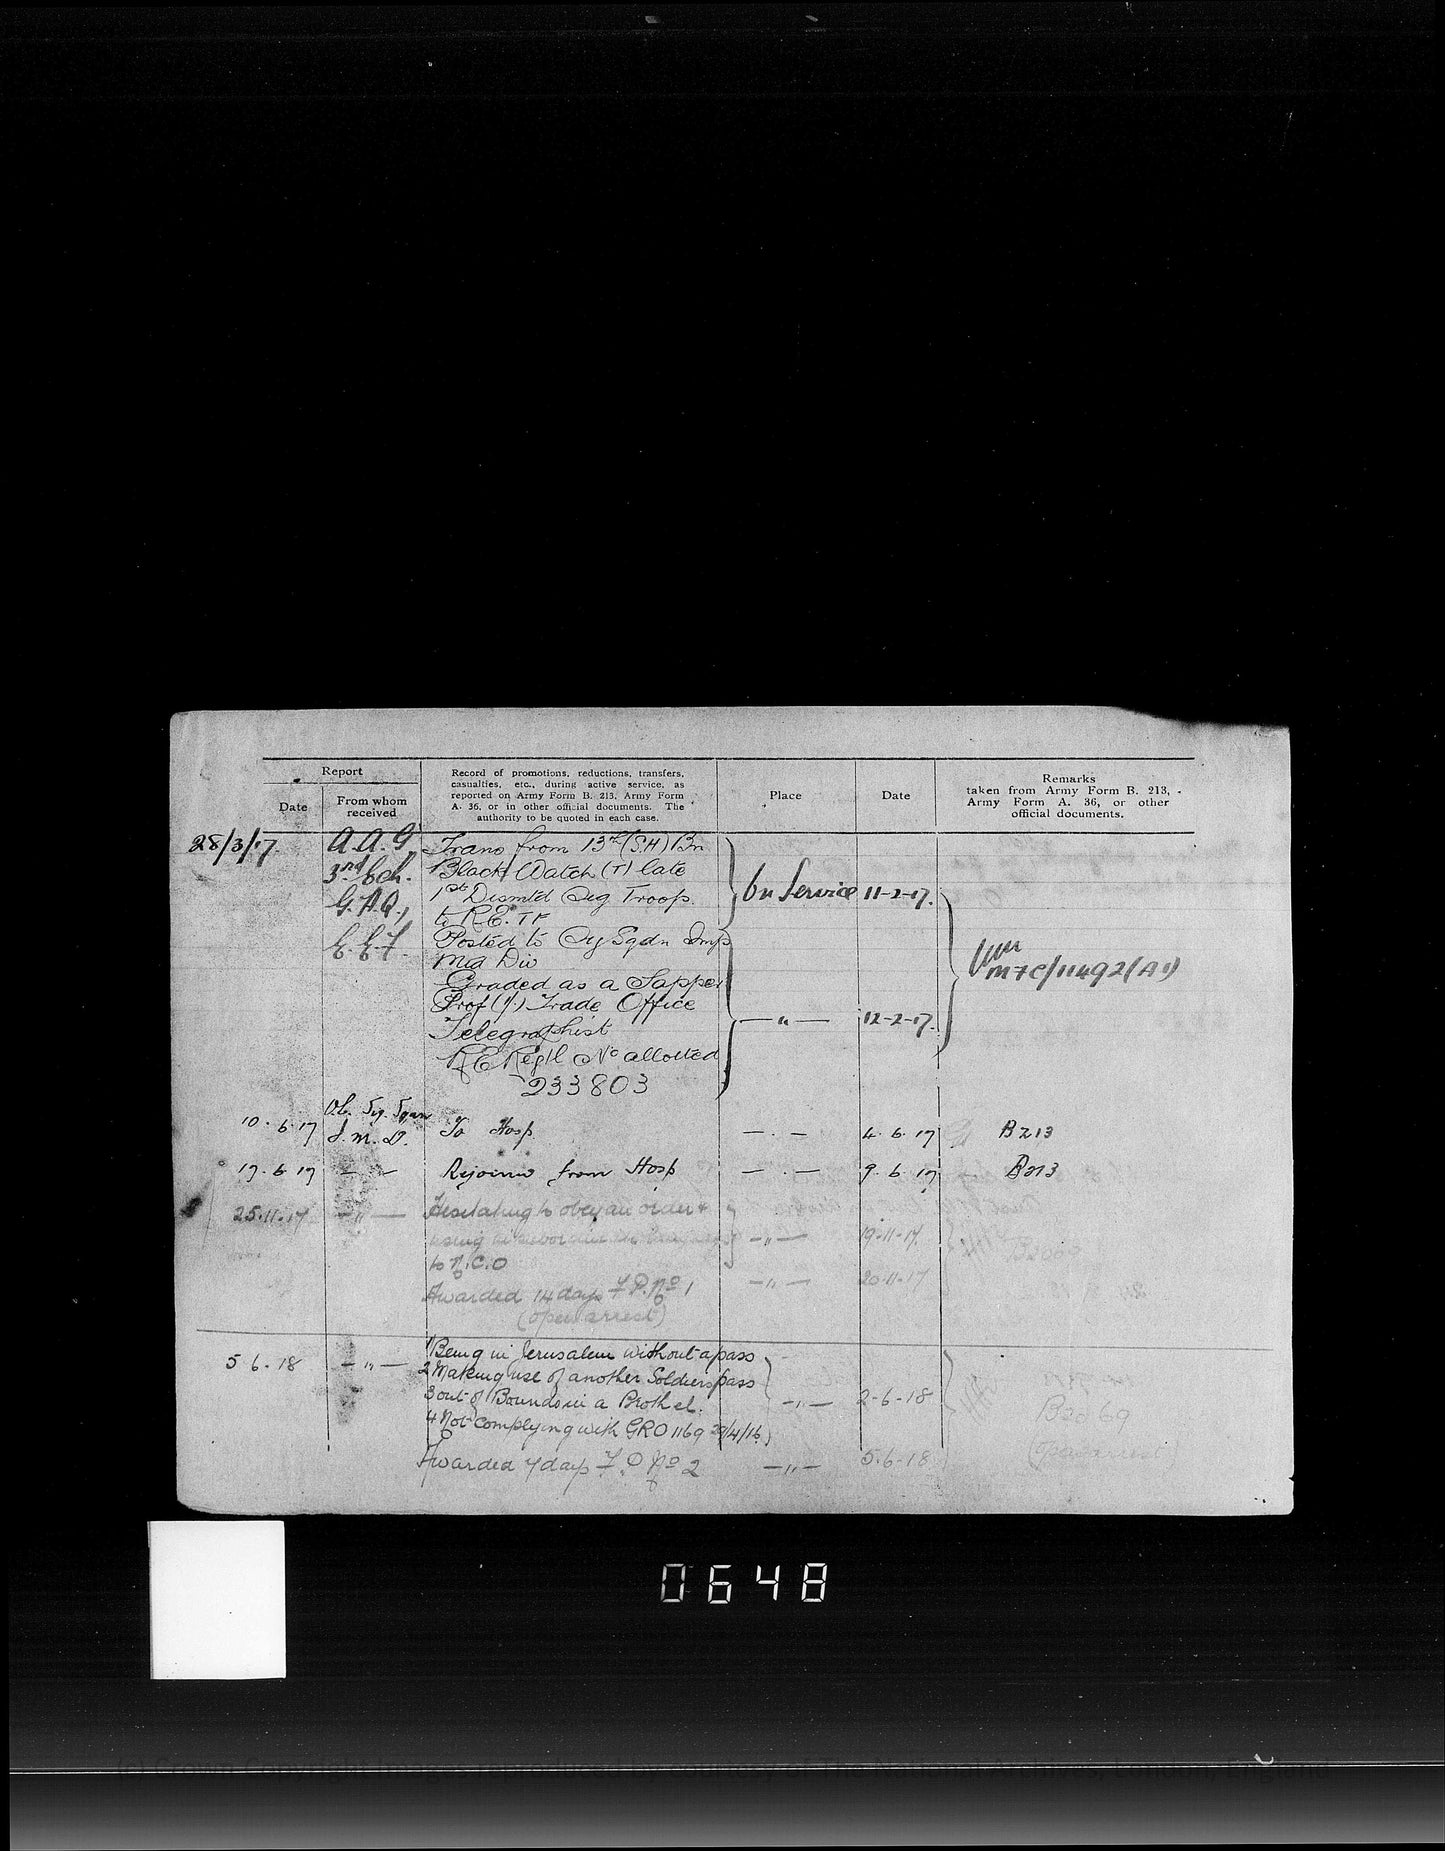 Report
Date
From whom received
Record of promotions, reductions, transfers,
casualties, etc., during active service, as
reported on Army Form B. 213, Army Form
A. 36, or in other official documents. The
authority to be quoted in each case.
Place
Date
Remarks
taken from Army Form B. 213,
Army Form A. 36, or other
official documents.
28/3/17. A.A.G Trans from 13th (S.H) Bn
3rd Ech. Black Watch (T) late
G.H.Q., 1st Dismtd Sig Troops. On Service 11-2-17.
to R.E. TF
E.E.F. Posted to Sig Sqdn Imp
Mtd Div
M7C/11492(A1)
Graded as a Sapper
Prof (1/-) Trade Office
Telegraphist —"— 12-2-17.
RE Regtl No allotted
233803
10.6.17 O.C. Sig. Sqdn
I.M.D. To Hosp. — . — 4.6.17 B213
17.6.17 — — Rejoined from Hosp — . — 9.6.17 B213
25.11.17 —"— Hesitating to obey an order &
using —"— 19-11-17
to N.C.O B2069
Awarded 14 days F.P. No 1 —"— 20.11.17
(open arrest)
5 6-18 —"— 1 Being in Jerusalem without a pass
2 Making use of another Soldiers pass
3 out of Bounds in a Brothel. —"— 2-6-18 B2069
4 Not complying with GRO 1169 29/4/16.
(open arrest)
Awarded 7 days F.P No 2 —"— 5.6-18
0648
(c) Crown Copyright Images reproduced by courtesy of The National Archives, London, England